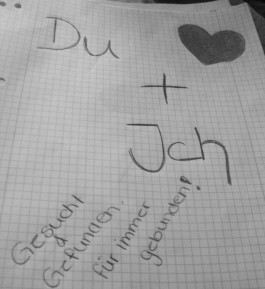 Du
+
Ich
Gesucht
&
Gefunden.
für immer
gebunden!